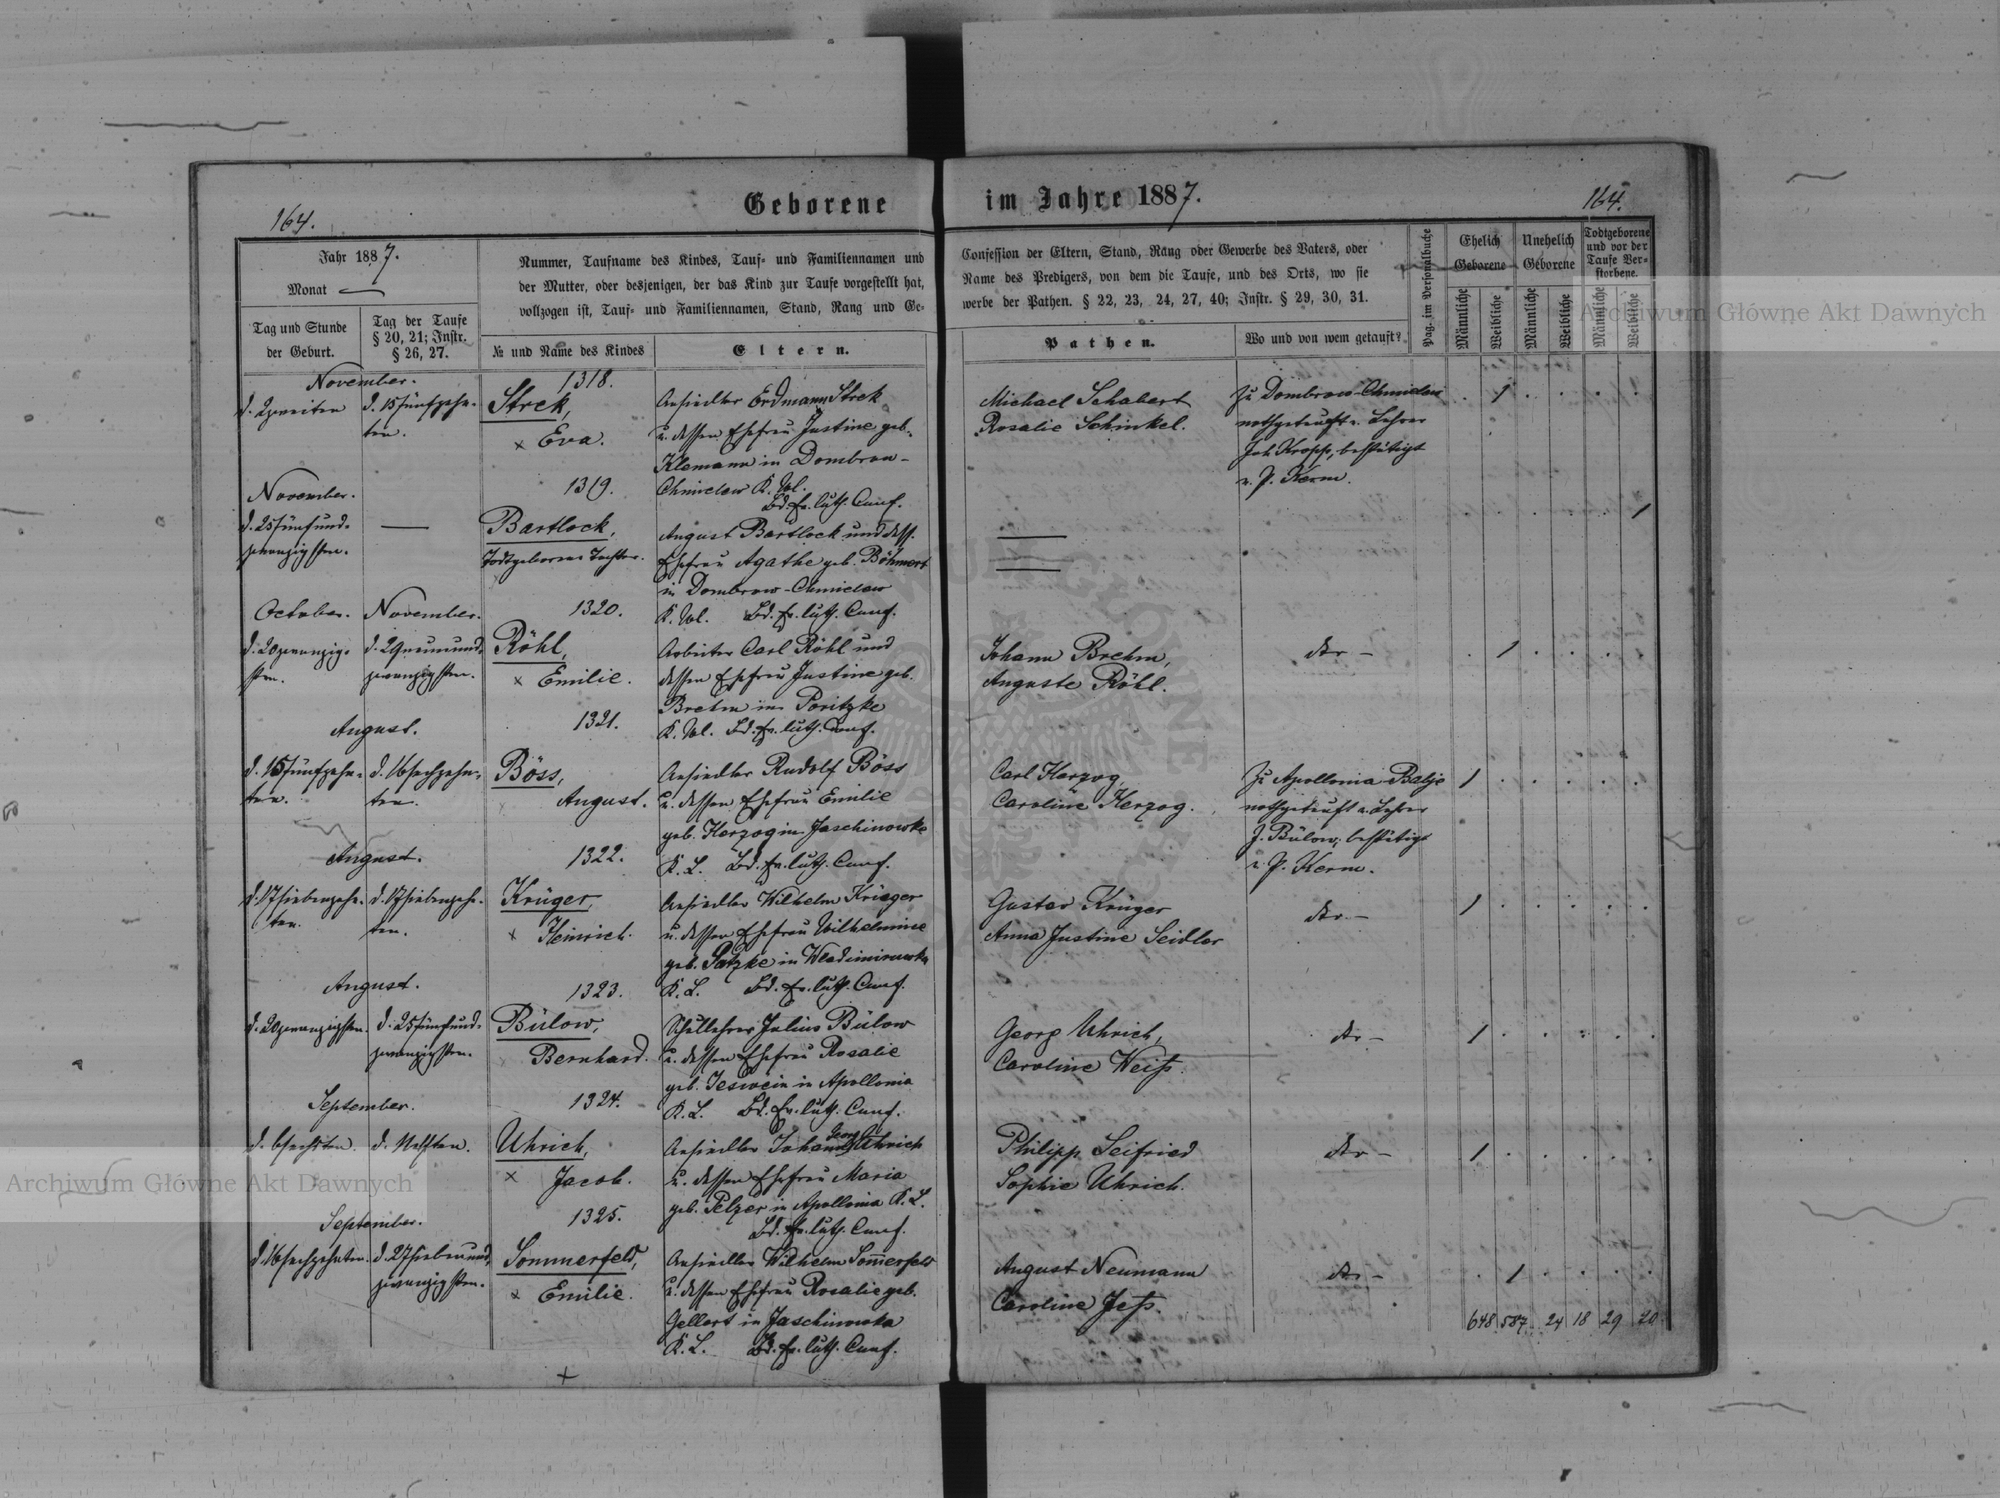 Geborene im Jahre 1887.
164.
164.
Jahr 1887.
Monat
Tag und Stunde
der Geburt.
Tag der Taufe
§ 20, 21; Instr.
§ 26, 27.
Nummer, Taufname des Kindes, Tauf- und Familiennamen und
der Mutter, oder desjenigen, der das Kind zur Taufe vorgestellt hat,
vollzogen ist, Tauf- und Familiennamen, Stand, Rang und Ge-
№ und Name des Kindes
Eltern.
Confession der Eltern, Stand, Rang oder Gewerbe des Vaters, oder
Name des Predigers, von dem die Taufe, und des Orts, wo sie
werbe der Pathen. § 22, 23, 24, 27, 40; Instr. § 29, 30, 31.
Pathen.
Wo und von wem getauft?
Pag. im Personalbuche
Ehelich
Geborene
Unehelich
Geborene
Todtgeborene
und vor der
Taufe Ver-
storbene.
Männliche
Weibliche
Männliche
Weibliche
Männliche
Weibliche
November.
d. 2 zweiten
d. 15 fünfzehn-
ten.
1318.
Strek,
× Eva.
Ansiedler Erdmann Strek
u. dessen Ehefrau Justine geb.
Klemann in Dombrow-
Chmielow K. Wl.
Bd. Ev. luth. Conf.
Michael Schabert
Rosalie Schinkel.
Zu Dombrow-Chmielow
nothgetauft v. Lehrer
Joh. Kropp, bestätigt
v. P. Kerm.
1
November.
d. 25 fünfund-
zwanzigsten.
1319.
Bartlock,
Todtgeborene Tochter.
August Bartlock und dess.
Ehefrau Agathe geb. Böhmert
in Dombrow-Chmielow
K. Wl. Bd. Ev. luth. Conf.
1
October.
d. 20 zwanzig-
sten.
November.
d. 29 neunund-
zwanzigsten.
1320.
Röhl,
× Emilie.
Arbeiter Carl Röhl und
dessen Ehefrau Justine geb.
Brehm in Poritzke
K. Wl. Bd. Ev. luth. Conf.
Johann Brehm,
Auguste Röhl.
1
August.
d. 15 fünfzehn-
ten.
d. 16 sechzehn-
ten.
1321.
Böss,
August.
Ansiedler Rudolf Böss
u. dessen Ehefrau Emilie
geb. Herzog in Jaschinowke
K. L. Bd. Ev. luth. Conf.
Carl Herzog,
Caroline Herzog.
Zu Apollonia Balje
nothgetauft v. Lehrer
J. Bülow; bestätigt
v. P. Kerm.
1
August.
d. 17 siebenzehn-
ten.
d. 17 siebenzehn-
ten.
1322.
Krüger,
× Heinrich.
Ansiedler Wilhelm Krüger
u. dessen Ehefrau Wilhelmine
geb. Patzke in Wladimirowka
K. L. Bd. Ev. luth. Conf.
Gustav Krüger
Anna Justine Seidler
1
August.
d. 20 zwanzigsten.
d. 25 fünfund-
zwanzigsten.
1323.
Bülow,
Bernhard.
Schullehrer Julius Bülow
u. dessen Ehefrau Rosalie
geb. Jeswein in Apollonia
K. L. Bd. Ev. luth. Conf.
Georg Uhrich,
Caroline Weiß.
1
September.
d. 6 sechsten.
d. 11 elften.
1324.
Uhrich,
× Jacob.
Georg
Ansiedler Johann Uhrich
u. dessen Ehefrau Maria
geb. Pelzer in Apollonia K. L.
Bd. Ev. luth. Conf.
Philipp Seifried
Sophie Uhrich.
1
September.
d. 16 sechzehnten.
d. 27 siebenund-
zwanzigsten.
1325.
Sommerfeld,
× Emilie.
Ansiedler Wilhelm Sommerfeld
u. dessen Ehefrau Rosalie geb.
Gellert in Jaschinowka
K. L. Bd. Ev. luth. Conf.
August Neumann
Caroline Jeß.
1
648 587 24 18 29 20
Archiwum Główne Akt Dawnych
Archiwum Główne Akt Dawnych